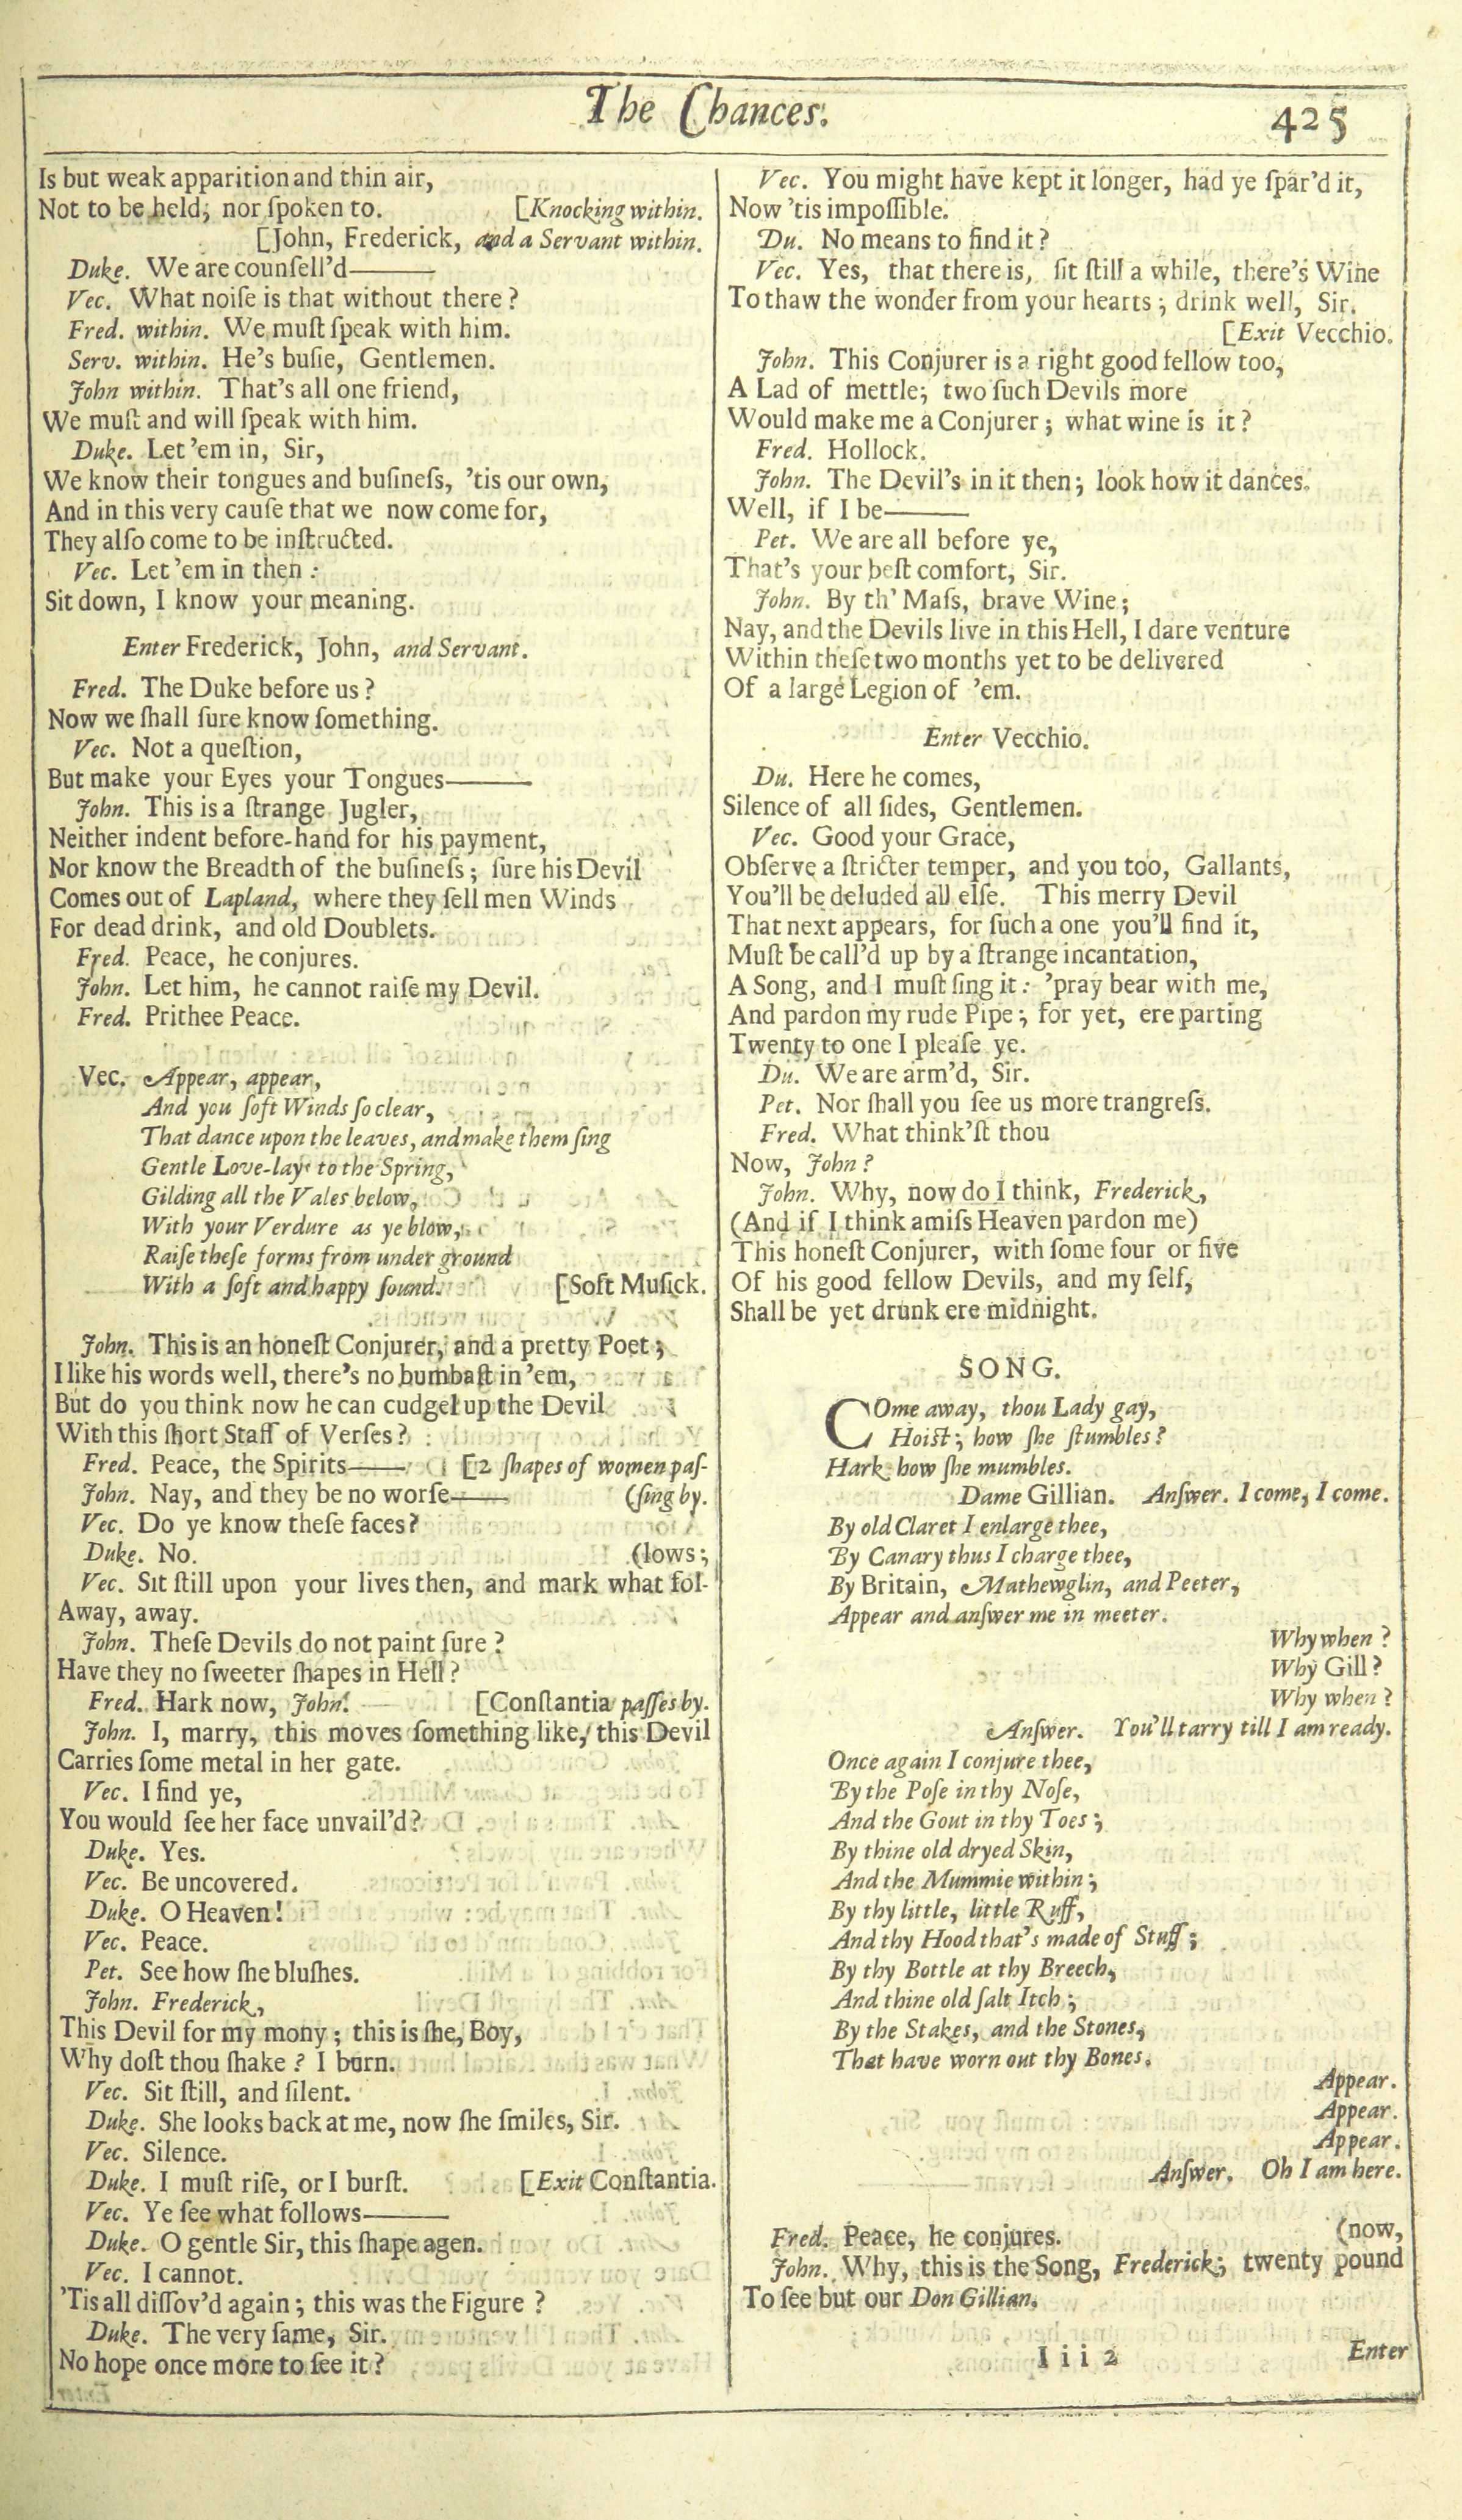 The Chances.
425
Is but weak apparition and thin air,
Not to be held, nor ſpoken to. [Knocking within.
[John, Frederick, and a Servant within.
Duke. We are counſell'd———
Vec. What noiſe is that without there?
Fred. within. We muſt ſpeak with him.
Serv. within. He's buſie, Gentlemen.
John within. That's all one friend,
We muſt and will ſpeak with him.
Duke. Let 'em in, Sir,
We know their tongues and buſineſs, 'tis our own,
And in this very cauſe that we now come for,
They alſo come to be inſtructed.
Vec. Let 'em in then :
Sit down, I know your meaning.
Enter Frederick, John, and Servant.
Fred. The Duke before us?
Now we ſhall ſure know ſomething.
Vec. Not a queſtion,
But make your Eyes your Tongues———
John. This is a ſtrange Jugler,
Neither indent before-hand for his payment,
Nor know the Breadth of the buſineſs; ſure his Devil
Comes out of Lapland, where they ſell men Winds
For dead drink, and old Doublets.
Fred. Peace, he conjures.
John. Let him, he cannot raiſe my Devil.
Fred. Prithee Peace.
Vec. Appear, appear,
And you ſoft Winds ſo clear,
That dance upon the leaves, and make them ſing
Gentle Love-lays to the Spring,
Gilding all the Vales below,
With your Verdure as ye blow,
Raiſe theſe forms from under ground
With a ſoft and happy ſound. [Soft Muſick.
John. This is an honeſt Conjurer, and a pretty Poet;
I like his words well, there's no bumbaſt in 'em,
But do you think now he can cudgel up the Devil
With this ſhort Staff of Verſes?
Fred. Peace, the Spirits—— [2 ſhapes of women paſ-
John. Nay, and they be no worſe—— (ſing by.
Vec. Do ye know theſe faces?
Duke. No. (lows;
Vec. Sit ſtill upon your lives then, and mark what fol-
Away, away.
John. Theſe Devils do not paint ſure?
Have they no ſweeter ſhapes in Hell?
Fred. Hark now, John. [Conſtantia paſſes by.
John. I, marry, this moves ſomething like, this Devil
Carries ſome metal in her gate.
Vec. I find ye,
You would ſee her face unvail'd?
Duke. Yes.
Vec. Be uncovered.
Duke. O Heaven!
Vec. Peace.
Pet. See how ſhe bluſhes.
John. Frederick,
This Devil for my mony; this is ſhe, Boy,
Why doſt thou ſhake? I burn.
Vec. Sit ſtill, and ſilent.
Duke. She looks back at me, now ſhe ſmiles, Sir.
Vec. Silence.
Duke. I muſt riſe, or I burſt. [Exit Conſtantia.
Vec. Ye ſee what follows———
Duke. O gentle Sir, this ſhape agen.
Vec. I cannot.
'Tis all diſſov'd again; this was the Figure?
Duke. The very ſame, Sir.
No hope once more to ſee it?
Vec. You might have kept it longer, had ye ſpar'd it,
Now 'tis impoſſible.
Du. No means to find it?
Vec. Yes, that there is, ſit ſtill a while, there's Wine
To thaw the wonder from your hearts; drink well, Sir.
[Exit Vecchio.
John. This Conjurer is a right good fellow too,
A Lad of mettle; two ſuch Devils more
Would make me a Conjurer; what wine is it?
Fred. Hollock.
John. The Devil's in it then; look how it dances.
Well, if I be———
Pet. We are all before ye,
That's your beſt comfort, Sir.
John. By th' Maſs, brave Wine;
Nay, and the Devils live in this Hell, I dare venture
Within theſe two months yet to be delivered
Of a large Legion of 'em.
Enter Vecchio.
Du. Here he comes,
Silence of all ſides, Gentlemen.
Vec. Good your Grace,
Obſerve a ſtricter temper, and you too, Gallants,
You'll be deluded all elſe. This merry Devil
That next appears, for ſuch a one you'll find it,
Muſt be call'd up by a ſtrange incantation,
A Song, and I muſt ſing it: 'pray bear with me,
And pardon my rude Pipe; for yet, ere parting
Twenty to one I pleaſe ye.
Du. We are arm'd, Sir.
Pet. Nor ſhall you ſee us more trangreſs.
Fred. What think'ſt thou
Now, John?
John. Why, now do I think, Frederick,
(And if I think amiſs Heaven pardon me)
This honeſt Conjurer, with ſome four or five
Of his good fellow Devils, and my ſelf,
Shall be yet drunk ere midnight.
SONG.
COme away, thou Lady gay,
Hoiſt; how ſhe ſtumbles?
Hark how ſhe mumbles.
Dame Gillian. Anſwer. I come, I come.
By old Claret I enlarge thee,
By Canary thus I charge thee,
By Britain, Mathewglin, and Peeter,
Appear and anſwer me in meeter.
Why when?
Why Gill?
Why when?
Anſwer. You'll tarry till I am ready.
Once again I conjure thee,
By the Poſe in thy Noſe,
And the Gout in thy Toes;
By thine old dryed Skin,
And the Mummie within;
By thy little, little Ruff,
And thy Hood that's made of Stuff;
By thy Bottle at thy Breech,
And thine old ſalt Itch;
By the Stakes, and the Stones,
That have worn out thy Bones.
Appear.
Appear.
Appear.
Anſwer. Oh I am here.
Fred. Peace, he conjures. (now,
John. Why, this is the Song, Frederick; twenty pound
To ſee but our Don Gillian.
I i i 2
Enter